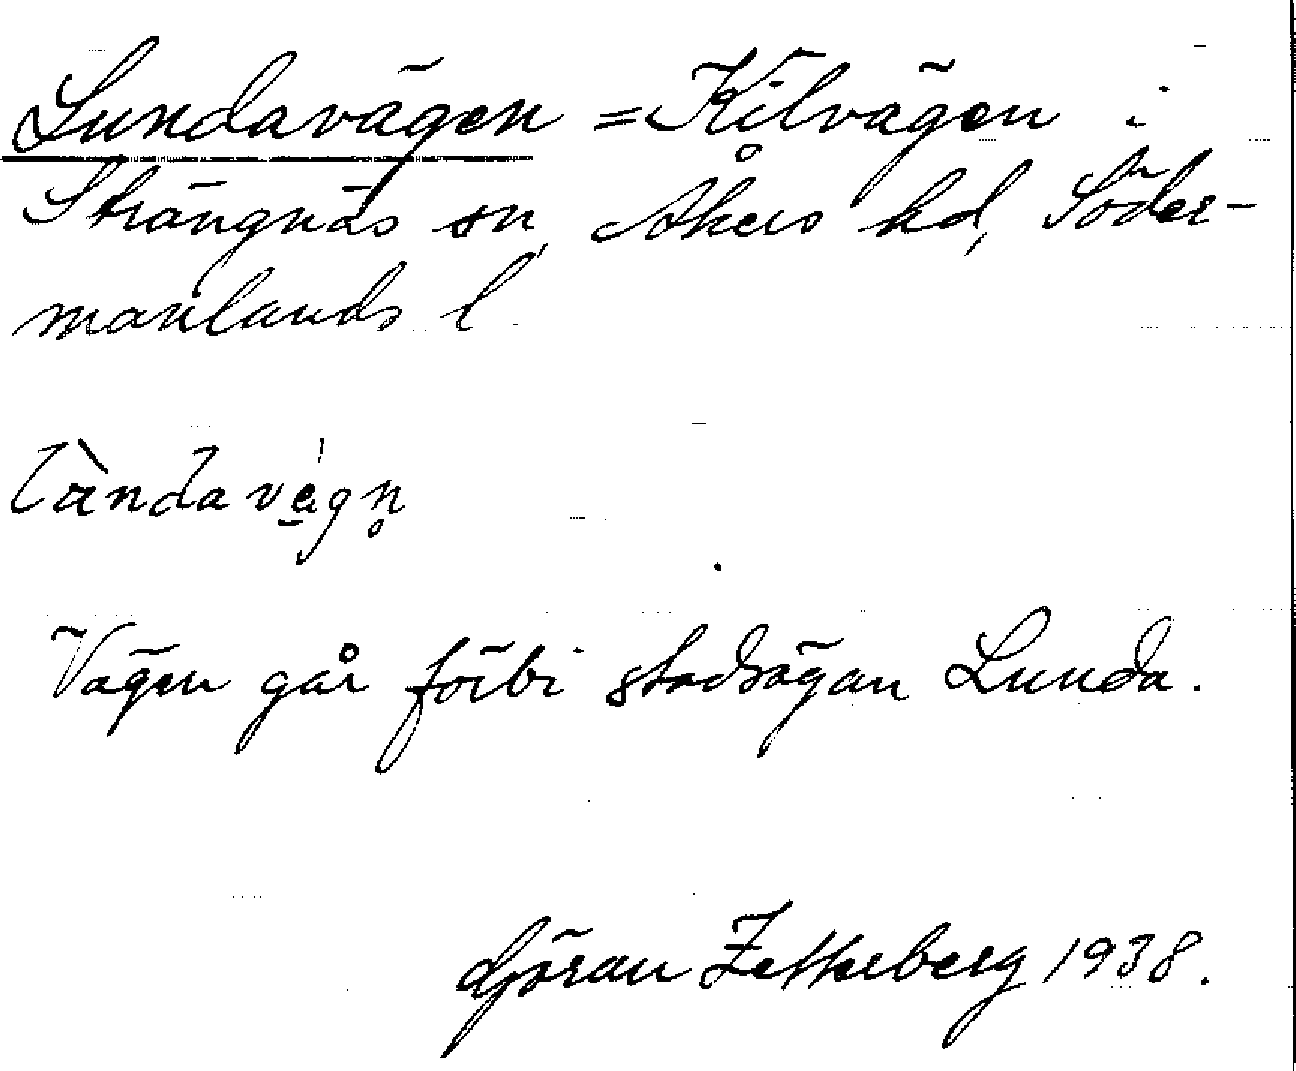 Lundavägen = Kilvägen i
Strängnäs sn, Åkers hd, Söder-
manlands l
Vägen går förbi stadsägan Lunda.
Göran Zetterberg 1938.